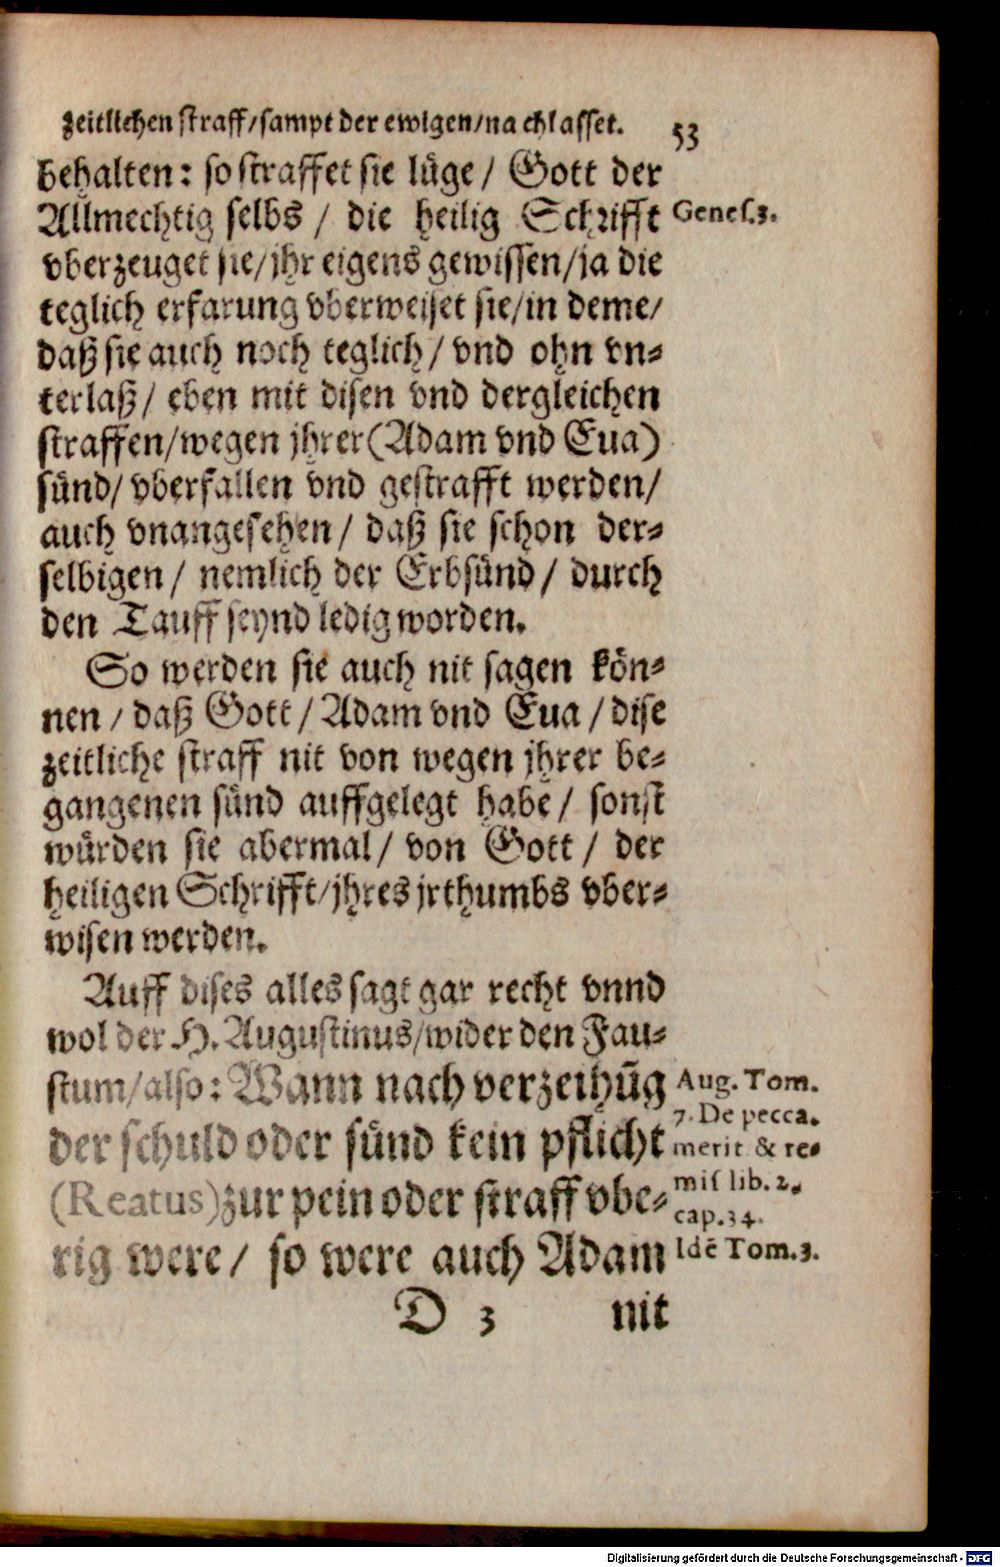 zeitlichen straff/sampt der ewigen/nachlasset. 53
behalten: so straffet sie lüge / Gott der
Allmechtig selbs / die heilig Schrifft Genes.3.
vberzeuget sie/jhr eigens gewissen/ja die
teglich erfarung vberweiset sie/in deme/
daß sie auch noch teglich/ vnd ohn vn-
terlaß/ eben mit disen vnd dergleichen
straffen/wegen jhrer(Adam vnd Eua)
sünd/ vberfallen vnd gestrafft werden/
auch vnangesehen / daß sie schon der-
selbigen / nemlich der Erbsünd / durch
den Tauff seynd ledig worden.
So werden sie auch nit sagen kön-
nen / daß Gott / Adam vnd Eua / dise
zeitliche straff nit von wegen jhrer be-
gangenen sünd auffgelegt habe / sonst
würden sie abermal/ von Gott / der
heiligen Schrifft/jhres jrthumbs vber-
wisen werden.
Auff dises alles sagt gar recht vnnd
wol der H. Augustinus/wider den Fau-
stum/also: Wann nach verzeihūg Aug. Tom.
7. De pecca.
der schuld oder sünd kein pflicht merit & re-
(Reatus)zur pein oder straff vbe- mis lib. 2.
cap.34.
rig were / so were auch Adam Idē Tom.3.
D 3 nit
Digitalisierung gefördert durch die Deutsche Forschungsgemeinschaft - DFG